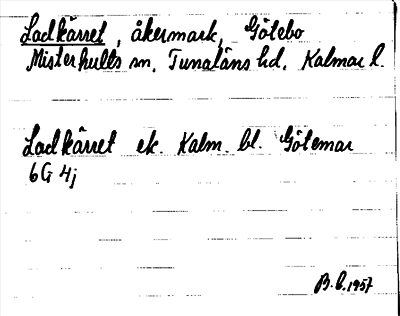 Ladkärret, åkermark, Götebo
Misterhults sn. Tunaläns hd. Kalmar l.
Ladkärret ek. Kalm. bl. Götemar
6G 4j
B.L. 1957